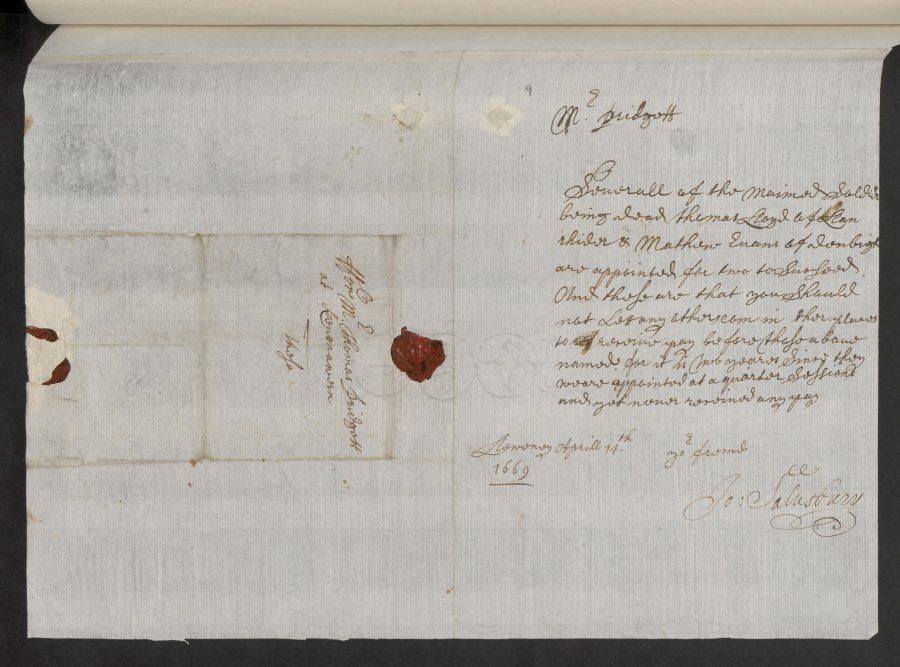 9
Mr Pridgett
Severall of the Maimed Soldirs
being dead thomas Lloyd of Llan
rhider & Mathew Evans of denbigh
are appointed for two to Succeed.
And these are that you Should
not Let any other com in ther places
to receive pay before these above
named for it is two yeares Since they
weare appointed at a quarter Sessions
and yet never received any pay
Lleweney Aprill 14th
1669
yor freind
Jo: Salusbury
ffor Mr Thomas Pridgett
at
These